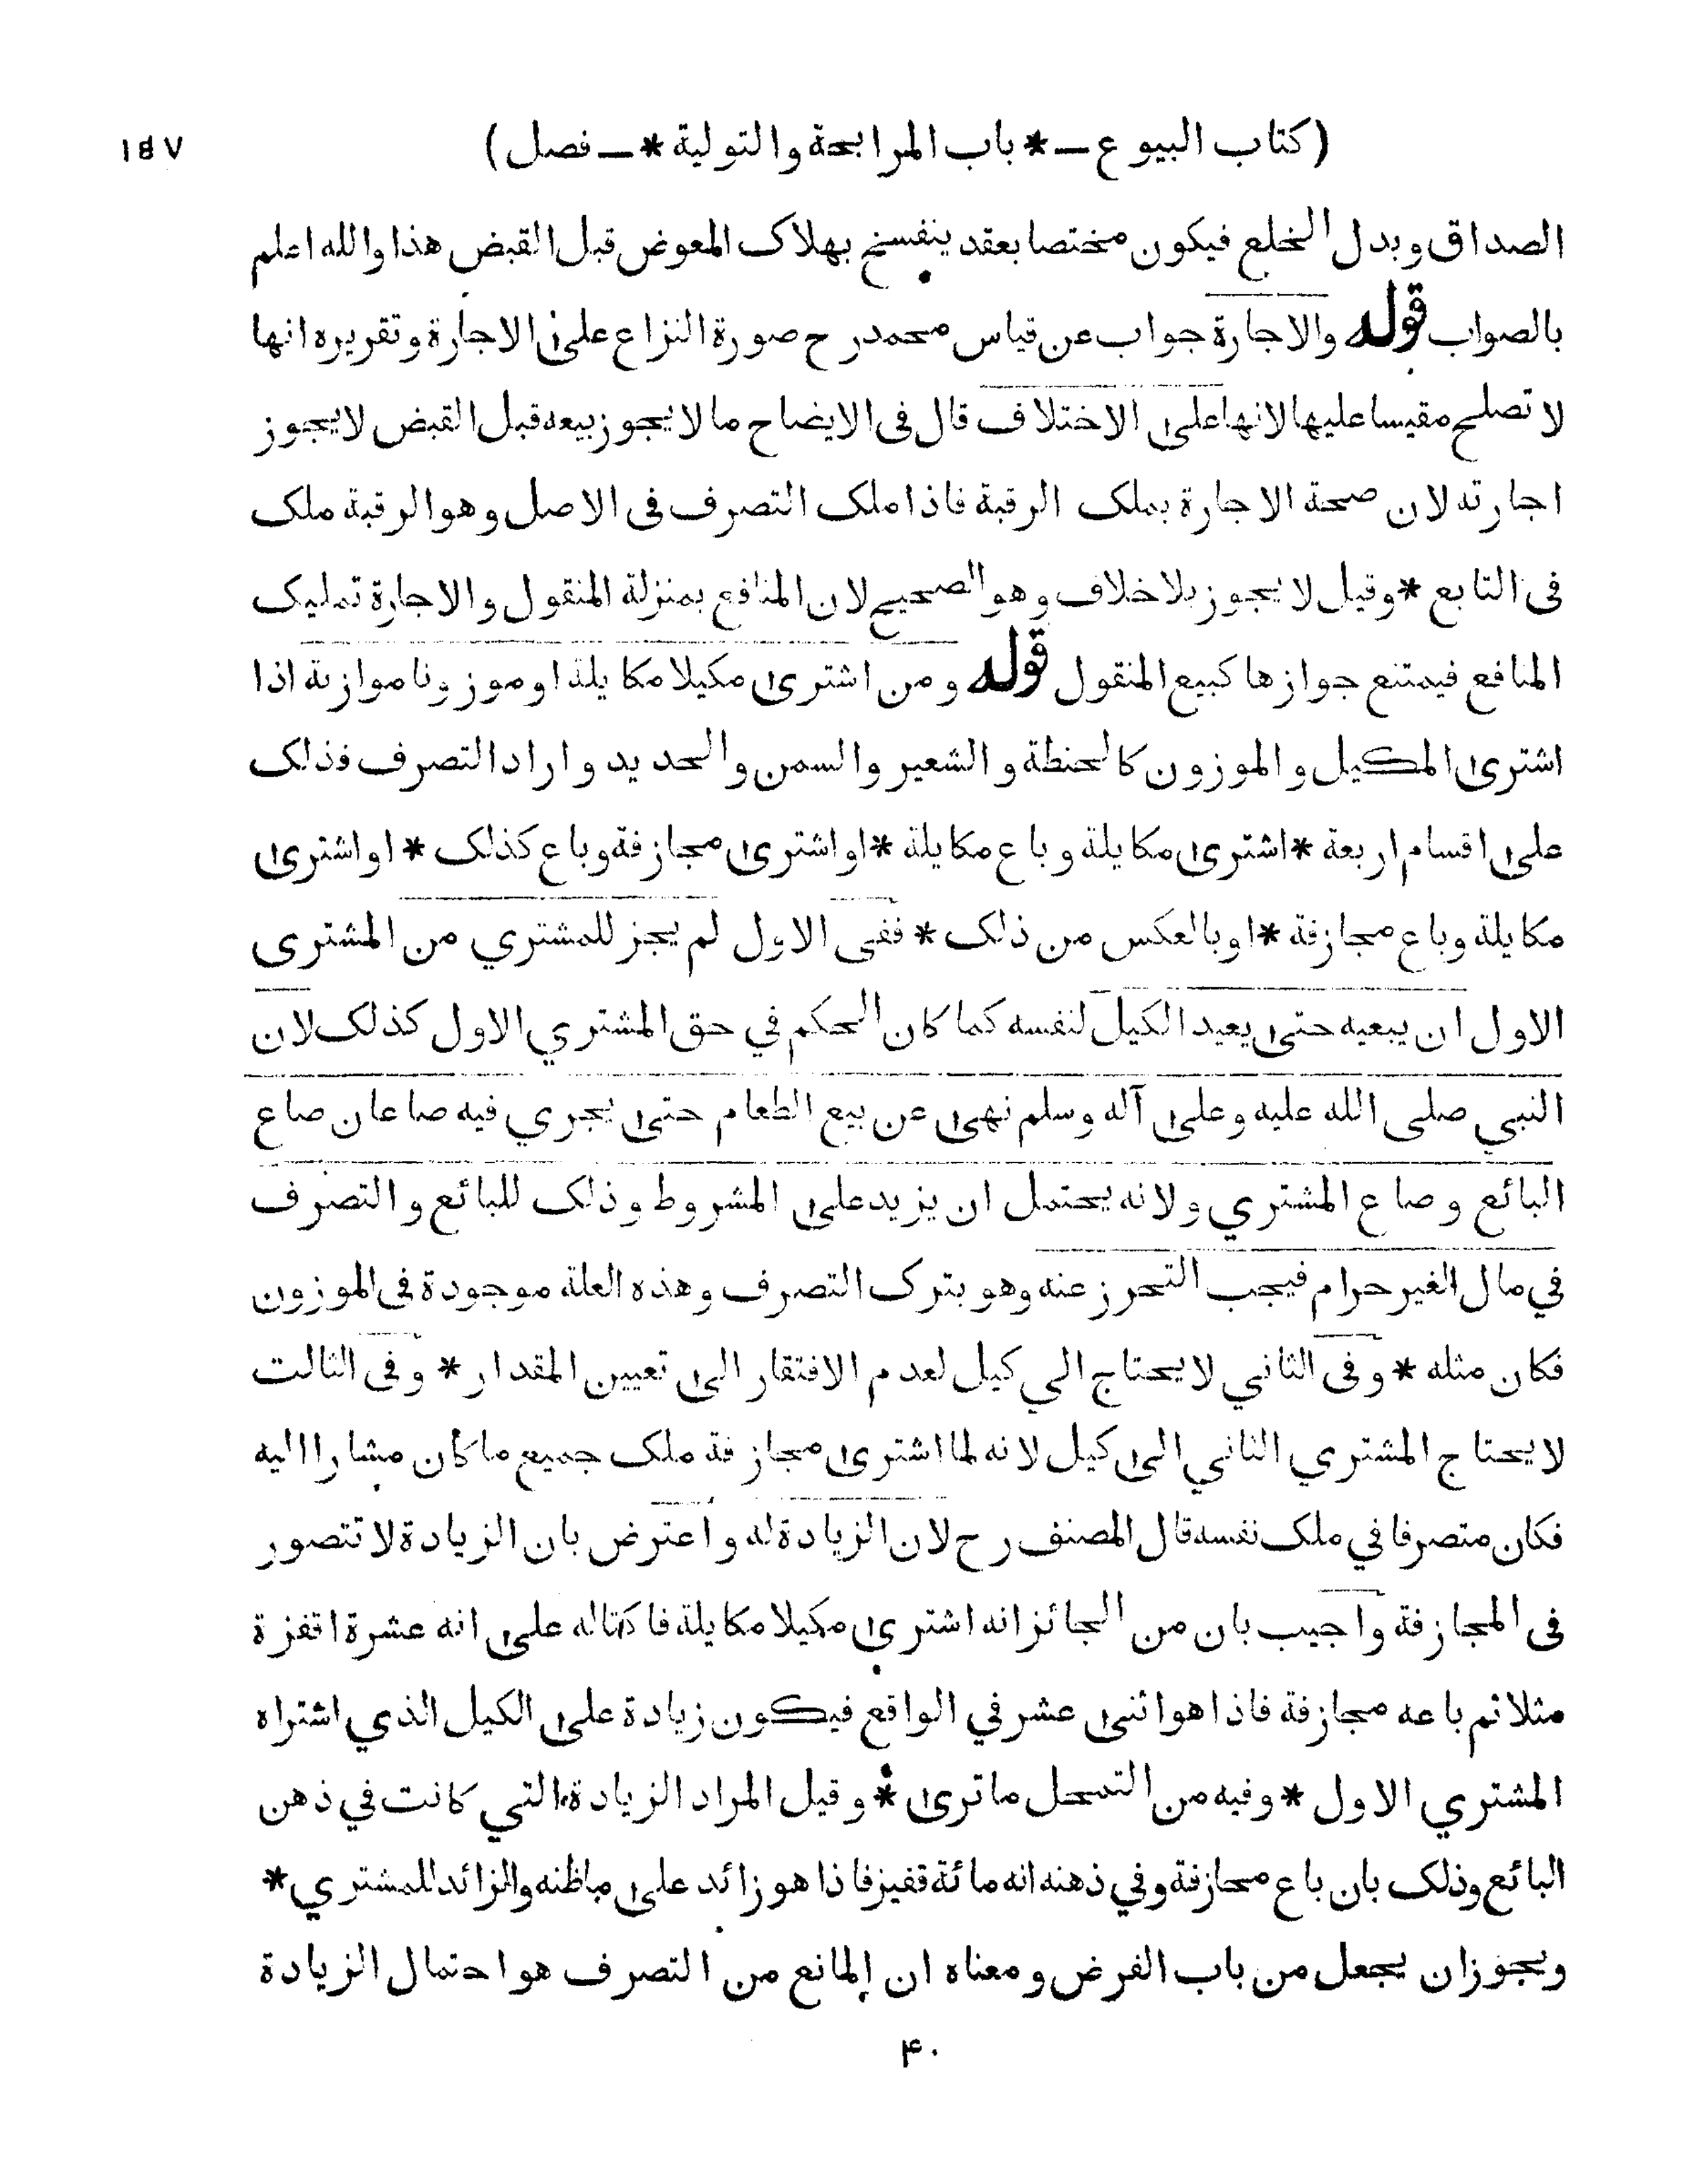 (کتاب البیوع — * باب المرابحة والتولیة * — فصل) ۱۵۷
الصداق وبدل الخلع فیکون مختصا بعقد ینفسخ بهلاک المعوض قبل القبض هذا والله اعلم
بالصواب قوله والاجارة جواب عن قیاس محمد رح صورة النزاع علی الاجارة وتقریره انها
لا تصلح مقیسا علیها لانها علی الاختلاف قال فی الایضاح ما لا یجوز بیعه قبل القبض لا یجوز
اجارته لان صحة الاجارة بملک الرقبة فاذا ملک التصرف فی الاصل وهو الرقبة ملک
فی التابع * وقیل لا یجوز بلا خلاف وهو الصحیح لان المنافع بمنزلة المنقول والاجارة تملیک
المنافع فیمتنع جوازها کبیع المنقول قوله ومن اشتری مکیلا مکایلة او موزونا موازنة اذا
اشتری المکیل والموزون کالحنطة والشعیر والسمن والحدید واراد التصرف فذلک
علی اقسام اربعة * اشتری مکایلة وباع مکایلة * او اشتری مجازفة وباع کذلک * او اشتری
مکایلة وباع مجازفة * او بالعکس من ذلک * ففی الاول لم یجز للمشتري من المشتری
الاول ان یبعیه حتی یعید الکیل لنفسه کما کان الحکم في حق المشتري الاول کذلک لان
النبي صلی الله علیه وعلی آله وسلم نهی عن بیع الطعام حتی یجري فیه صاعان صاع
البائع وصاع المشتري ولانه یحتمل ان یزید علی المشروط وذلک للبائع والتصرف
في مال الغیر حرام فیجب التحرز عنه وهو بترک التصرف وهذه العلة موجودة فی الموزون
فکان مثله * وفی الثاني لا یحتاج الي کیل لعدم الافتقار الی تعیین المقدار * وفی الثالث
لا یحتاج المشتري الثاني الی کیل لانه لما اشتری مجازفة ملک جمیع ما کان مشارا الیه
فکان متصرفا في ملک نفسه قال المصنف رح لان الزیادة له واعترض بان الزیادة لا تتصور
فی المجازفة واجیب بان من الجائز انه اشتری مکیلا مکایلة فاکتاله علی انه عشرة اقفزة
مثلا ثم باعه مجازفة فاذا هو اثنی عشر في الواقع فیکون زیادة علی الکیل الذي اشتراه
المشتري الاول * وفیه من التمحل ما تری * وقیل المراد الزیادة التي کانت في ذهن
البائع وذلک بان باع مجازفة وفي ذهنه انه مائة قفیز فاذا هو زائد علی ما ظنه والزائد للمشتري *
ویجوز ان یجعل من باب الفرض ومعناه ان المانع من التصرف هو احتمال الزیادة
۴۰